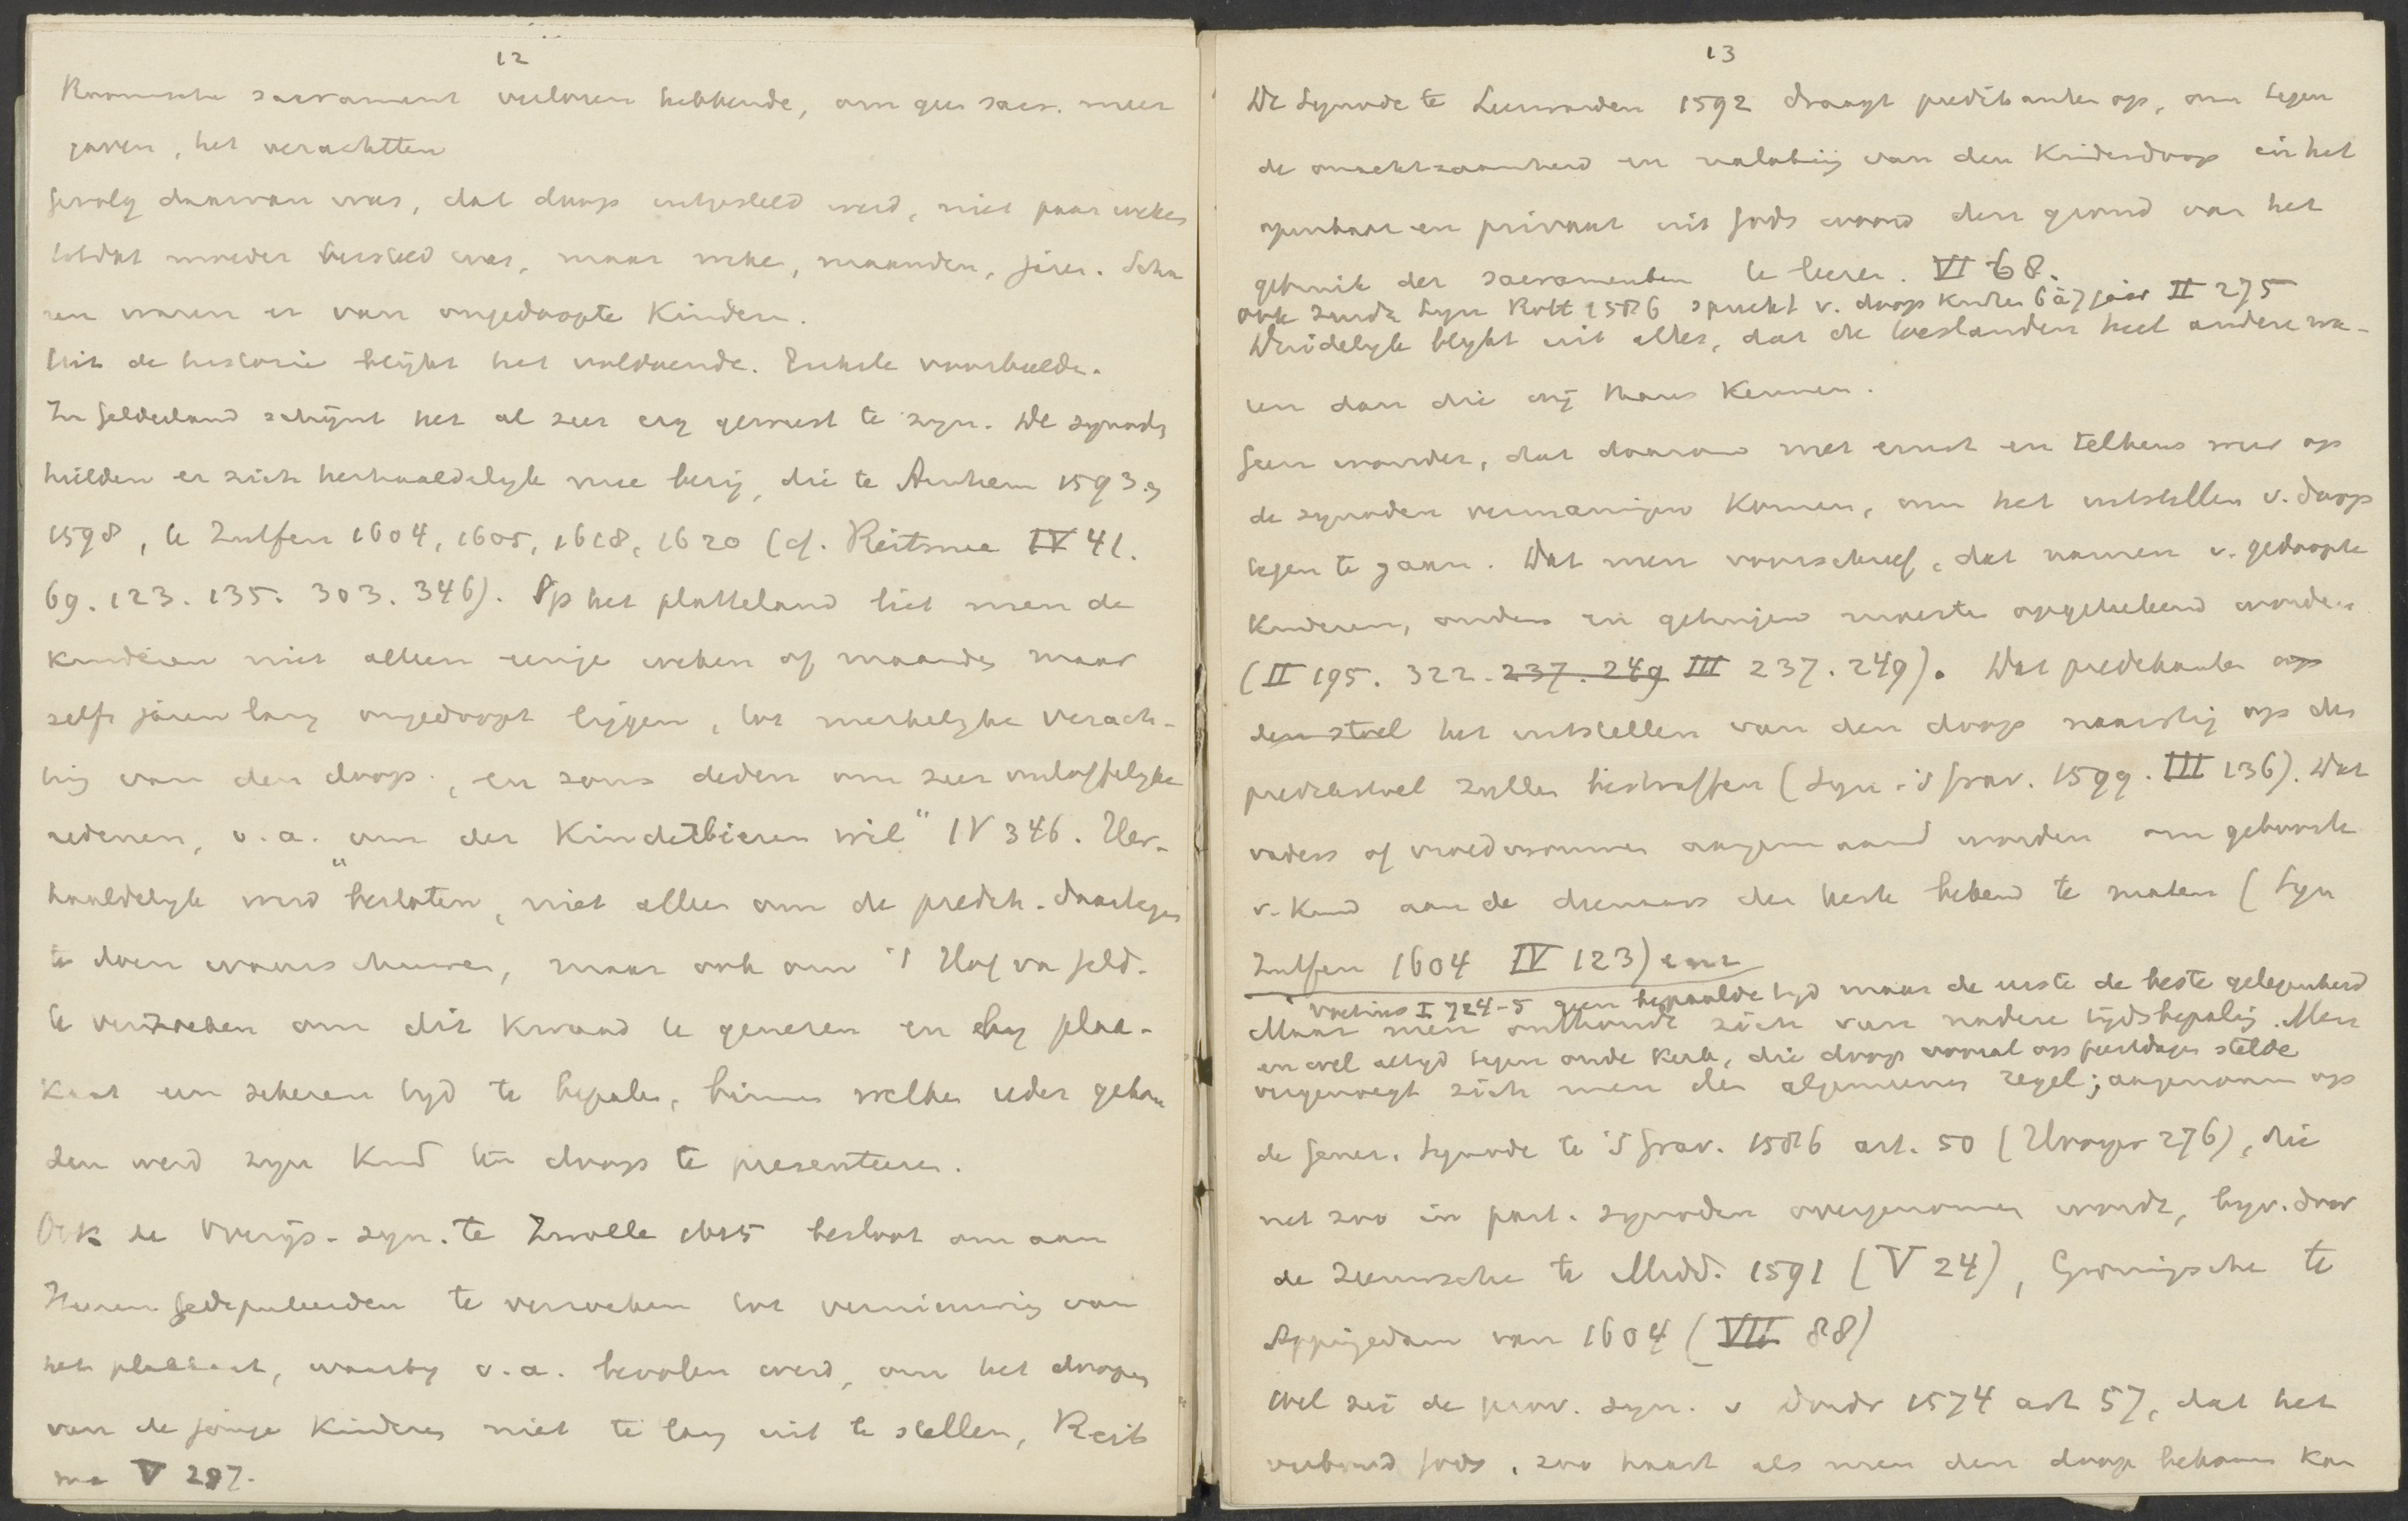 12
Roomsche sacrament verloren hebbende, om geen sacr. meer
gaven, het verachtten
Gevolg daarvan was, dat doop uitgesteld werd, niet paar weken
totdat moeder hersteld was, maar weken, maanden, jaren. Scha
ren waren er van ongedoopte Kinderen.
Uit de historie blijkt het voldoende. Enkele voorbeelden.
In Gelderland schijnt het al zeer erg geweest te zijn. De synodes
hielden er zich herhaaldelyk mee bezig, die te Arnhem 1593 en
1598, te Zutfen 1604, 1605, 1618, 1620 (cf. Reitsma IV 41.
69. 123. 135. 303. 346). Op het platteland liet men de
kinderen niet alleen eenige weken of maanden maar
zelfs jaren lang ongedoopt liggen, tot merkelyke verach-
ting van den doop, en soms deden om zeer onloffelyke
redenen, o.a. "om der Kinderbieren wil" IV 346. Her-
haaldelyk werd besloten, niet alleen om de predik. daartegen
te doen waarschuwen, maar ook om 't Hof van Geld.
te verzoeken om dit kwaad te genezen en by plac-
kaat een zekeren tyd te bepalen, binnen welken ieder gehou
den werd zyn Kind ten doop te presenteeren.
Ook de Overijs. syn. te Zwolle 1615 besloot om aan
Heeren Gedeputeerden te verzoeken tot vernieuwing van
het plakkaat, waarby o.a. bevolen werd, om het doopen
van de jonge Kinderen niet te lang uit te stellen, Reits
ma V 297.
13
De Synode te Leeuwarden 1592 draagt predikanten op, om tegen
de onachtzaamheid en nalating van den Kinderdoop in het
openbaar en privaat uit Gods woord den grond van het
gebruik der sacramenten te leeren. VI 68.
ook Zuidh Syn Rott 1586 spreekt v. doop Kinderen 6 à 7 jaar II 275
Duidelyk blykt uit alles, dat de toestanden heel andere wa-
ren dan die wij thans Kennen.
Geen wonder, dat daarom met ernst en telkens weer op
de synoden vermaningen Komen, om het uitstellen v. doop
tegen te gaan. Dat men voorschreef, dat namen v. gedoopte
Kinderen, ouders en getuigen moesten opgeteekend worden
(II 195. 322. 237. 249 III 237. 249). Dat predikanten op
den stoel het uitstellen van den doop naarstig op den
predikstoel zullen bestraffen (Syn. 's Grav. 1599. III 136). Dat
vaders of vroedvrouwen aangemaand worden om geboorte
v. Kind aan de dienaars der kerk bekend te maken (Syn
Zutfen 1604 IV 123) enz
Voetius I 724-5 geen bepaalde tyd maar de eerste de beste gelegenheid
Maar men onthoudt zich van nadere tijdsbepaling. Men
en wel altyd tegen oude Kerk, die doop vooral op feestdagen stelde
vergenoegt zich met den algemeenen regel; aangenomen op
de Gener. Synode te 's Grav. 1586 art. 50 (Hooyer 276), die
net zoo in part. synoden overgenomen wordt, byv. door
de Zeeuwsche te Midd. 1591 (V 24), Groningsche te
Appingedam van 1604 (VII 88)
Wel zei de prov. syn. v Dordr 1574 art 57, dat het
verbond Gods, zoo haast als men den doop bekomen Kan